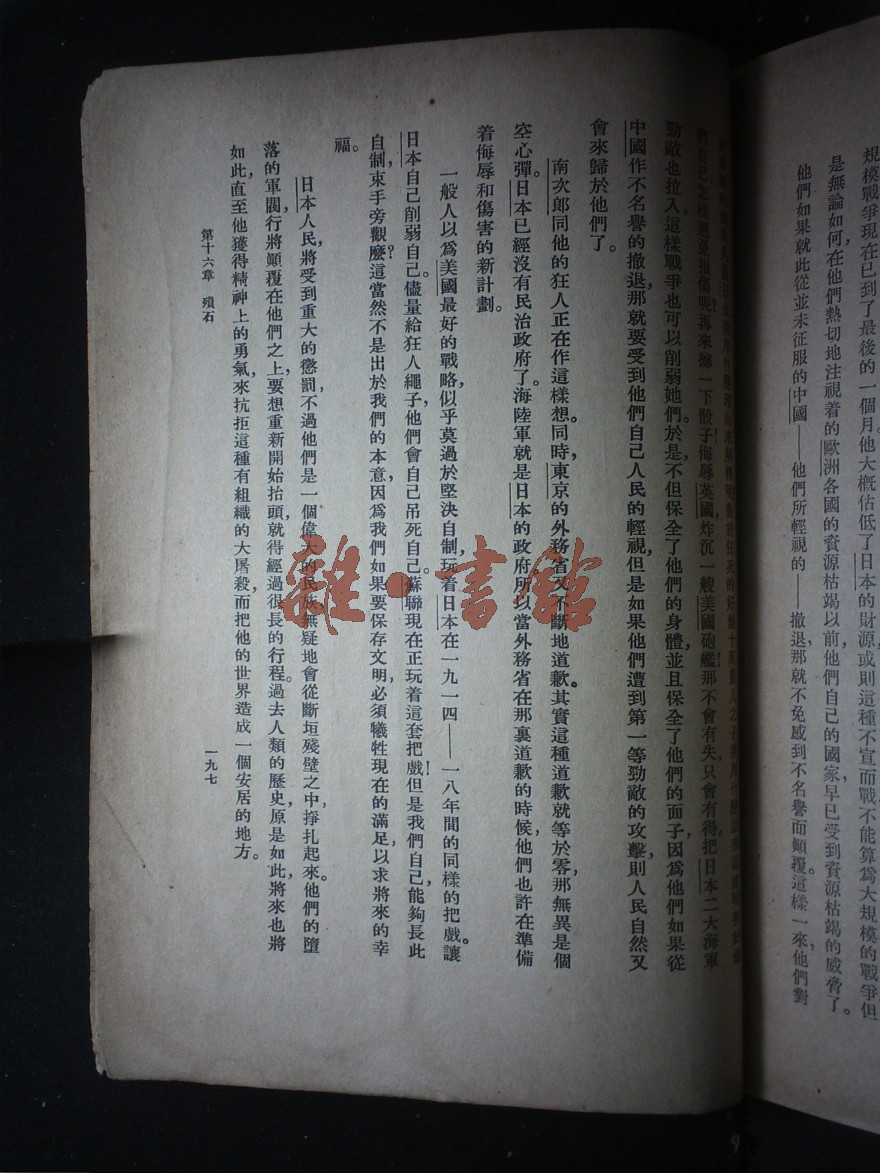 規模戰爭現在已到了最後的一個月他大槪估低了日本的財源或則這種不宣而戰不能算爲大規模的戰爭但
是無論如何,在他們熱切地注視着的歐洲各國的資源枯竭以前,他們自己的國家早已受到資源枯竭的威脅了。
他們如果就此從並未征服的中國——他們所輕視的——撤退,那就不免感到不名譽而顚覆。這樣一來,他們對
們自己怎樣避免損傷呢?再來擲一下骰子!侮辱英國,炸沉一艘美國砲艦!那不會有失,只會有得,把日本二大海軍
勁敵也拉入這樣戰爭,也可以削弱她們。於是,不但保全了他們的身體,並且保全了他們的面子,因爲他們如果從
中國作不名譽的撤退,那就要受到他們自己人民的輕視,但是如果他們遭到第一等勁敵的攻擊,則人民自然又
會來歸於他們了。
南次郎同他的狂人正在作這樣想。同時,東京的外務省又不斷地道歉。其實這種道歉就等於零,那無異是個
空心彈。日本已經沒有民治政府了。海陸軍就是日本的政府。所以當外務省在那裏道歉的時候,他們也許在準備
着侮辱和傷害的新計劃。
一般人以爲美國最好的戰略似乎莫過於堅決自制,玩着日本在一九一四——一八年間的同樣的把戲。讓
日本自己削弱自己。儘量給狂人繩子,他們會自己吊死自己。蘇聯現在正玩着這套把戲!但是我們自己能夠長此
自制,束手旁觀麼?這當然不是出於我們的本意,因爲我們如果要保存文明,必須犧牲現在的滿足,以求將來的幸
福。
日本人民,將受到重大的懲罰,不過他們是一個偉大的民族,無疑地會從斷垣殘壁之中,掙扎起來。他們的墮
落的軍閥行將顚覆在他們之上,要想重新開始抬頭,就得經過很長的行程。過去人類的歷史,原是如此,將來也將
如此,直至他獲得精神上的勇氣,來抗拒這種有組織的大屠殺,而把他的世界造成一個安居的地方。
第十六章 殞石
一九七
雜·書館